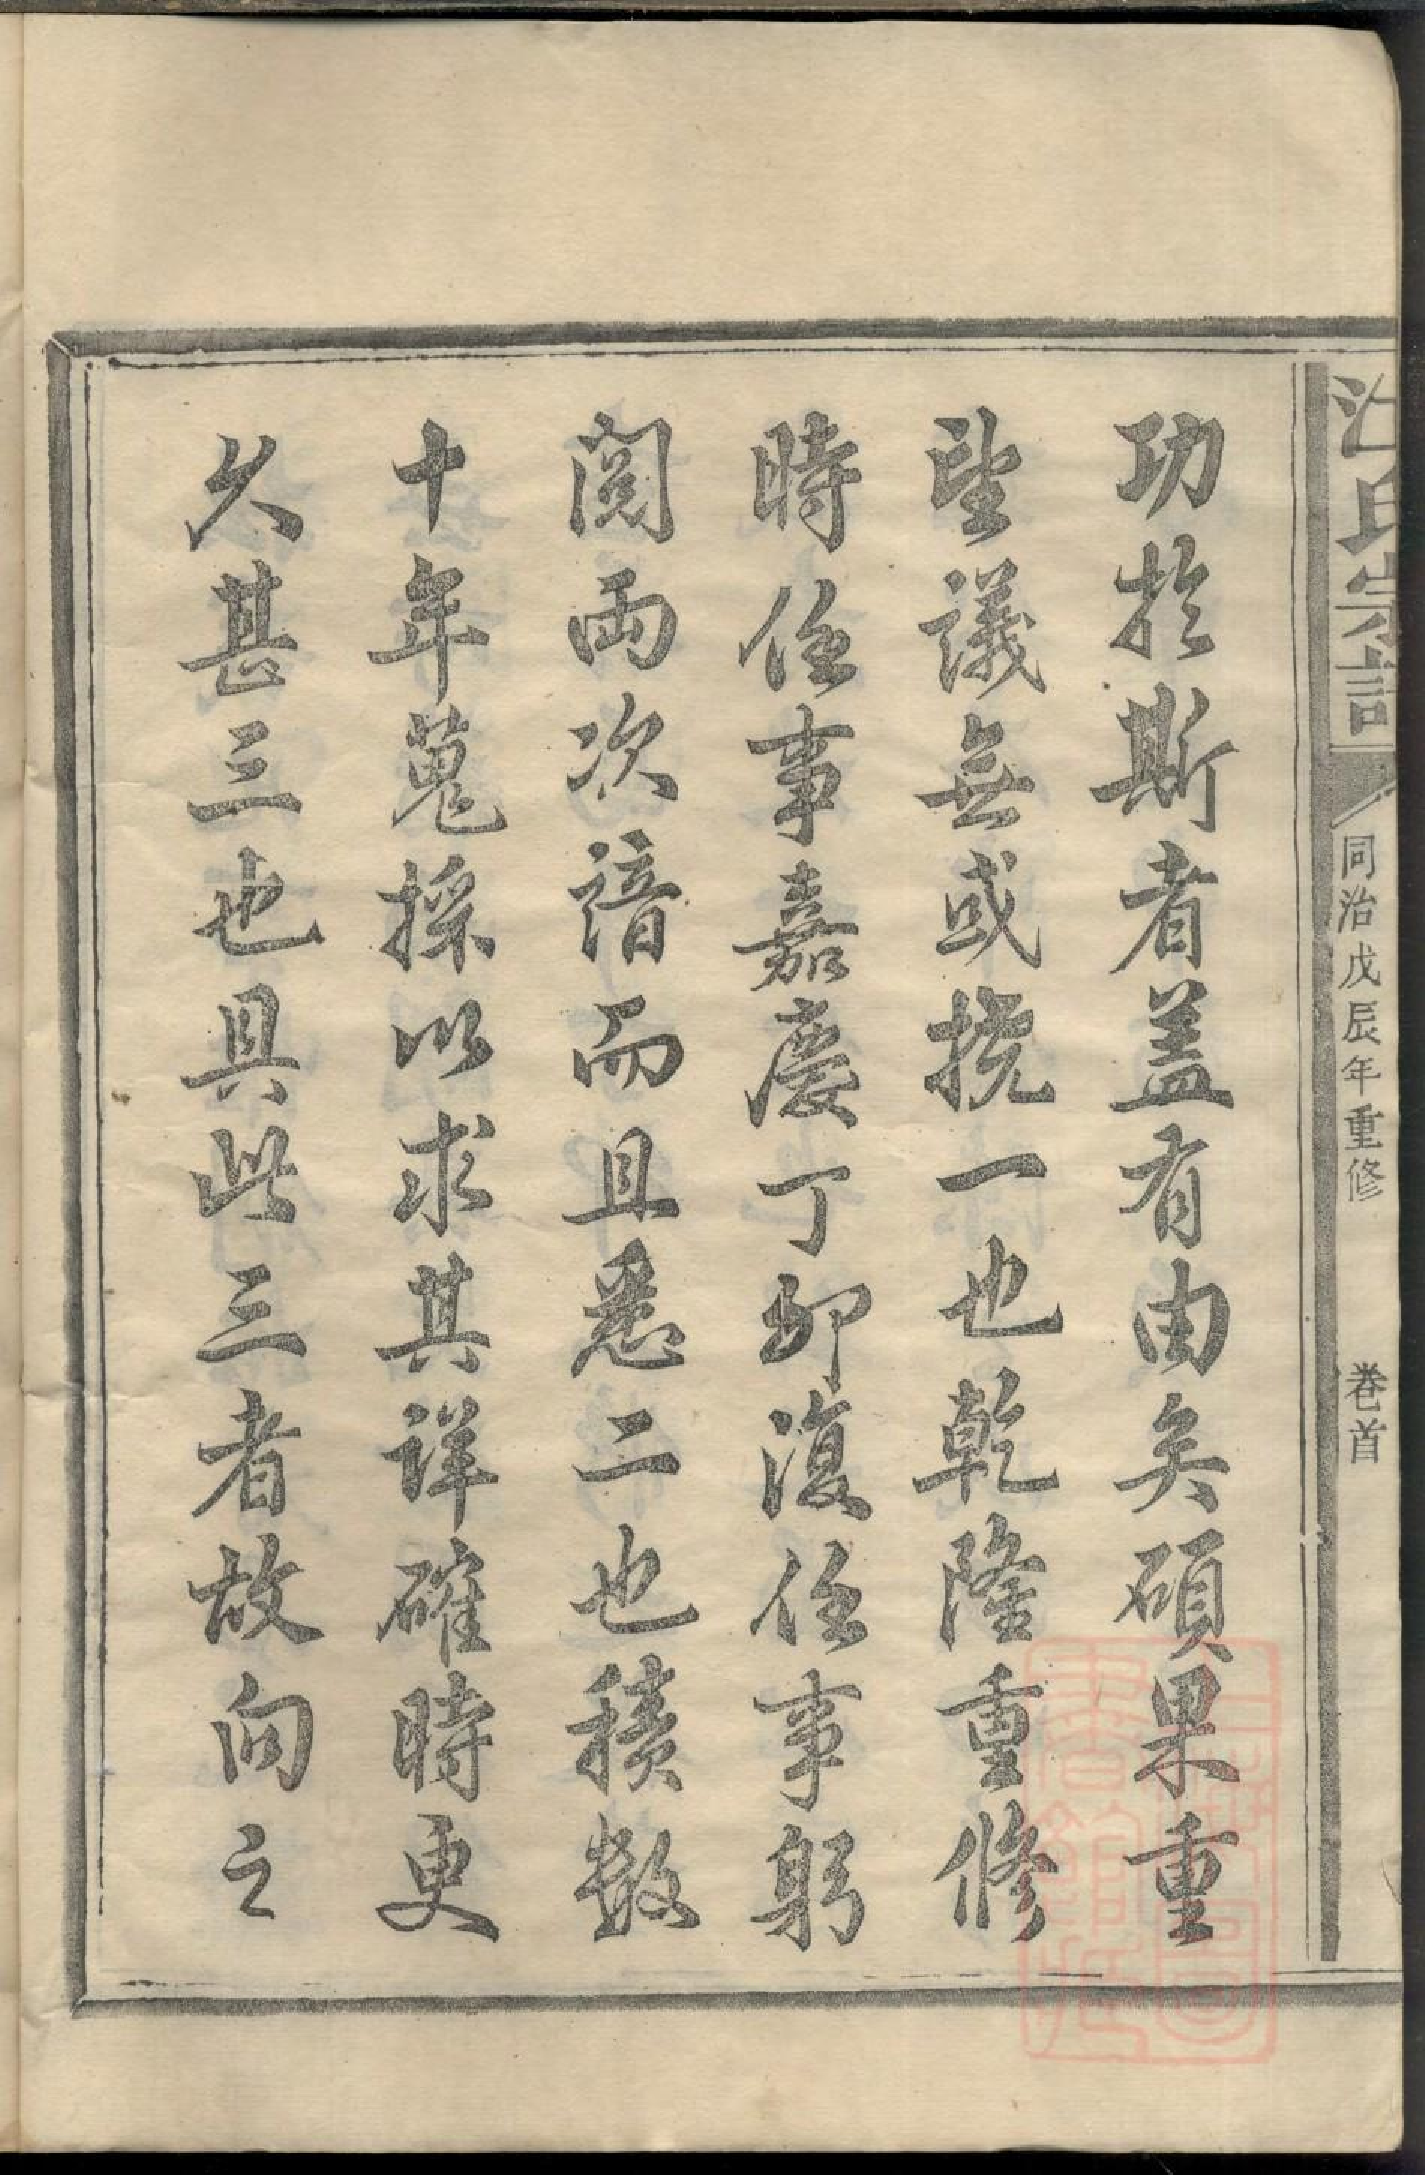 江氏宗譜
同治戊辰年重修
卷首
功於斯者盖有由矣碩果重
望議無或撓一也乾隆重修
時任事嘉慶丁卯復任事躬
閲兩次諳而且悉二也積数
十年蒐採以求其詳確時更
久甚三也具此三者故向之